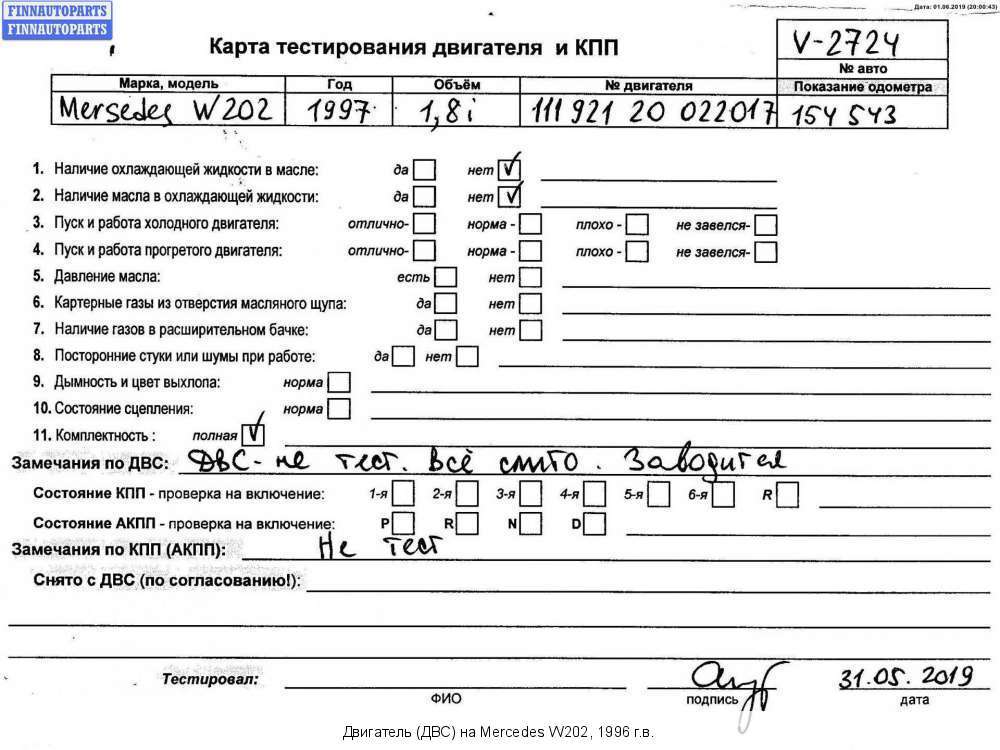 FINNAUTOPARTS
FINNAUTOPARTS
Дата: 01.06.2019 (20:00:43)
Карта тестирования двигателя и КПП
V-2724
№ авто
Марка, модель Год Объём № двигателя Показание одометра
Mersedes W202 1997 1,8i 111 921 20 022017 154 543
1. Наличие охлаждающей жидкости в масле: да нет ✓
2. Наличие масла в охлаждающей жидкости: да нет ✓
3. Пуск и работа холодного двигателя: отлично- норма - плохо - не завелся-
4. Пуск и работа прогретого двигателя: отлично- норма - плохо - не завелся-
5. Давление масла: есть нет
6. Картерные газы из отверстия масляного щупа: да нет
7. Наличие газов в расширительном бачке: да нет
8. Посторонние стуки или шумы при работе: да нет
9. Дымность и цвет выхлопа: норма
10. Состояние сцепления: норма
11. Комплектность : полная ✓
Замечания по ДВС: ДВС - не тест. Всё слито. Заводится
Состояние КПП - проверка на включение: 1-я 2-я 3-я 4-я 5-я 6-я R
Состояние АКПП - проверка на включение: P R N D
Замечания по КПП (АКПП): Не тест
Снято с ДВС (по согласованию!):
Тестировал: 31.05.2019
ФИО подпись дата
Двигатель (ДВС) на Mercedes W202, 1996 г.в.